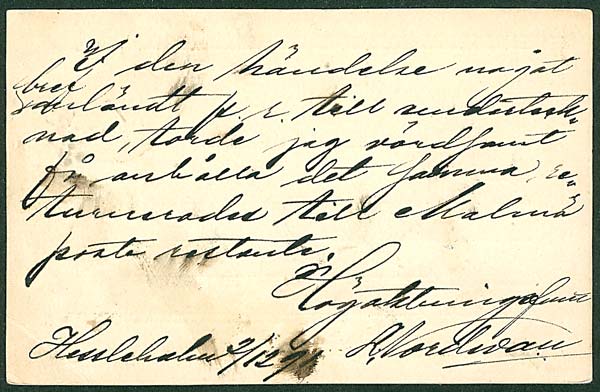 I den händelse något
bref
anländt p. r. till underteck-
nad, torde jag vördsamt
få anhålla det samma re-
turnerades till Malmö
poste restante.
Högaktningsfullt
Hessleholm 3/12 9